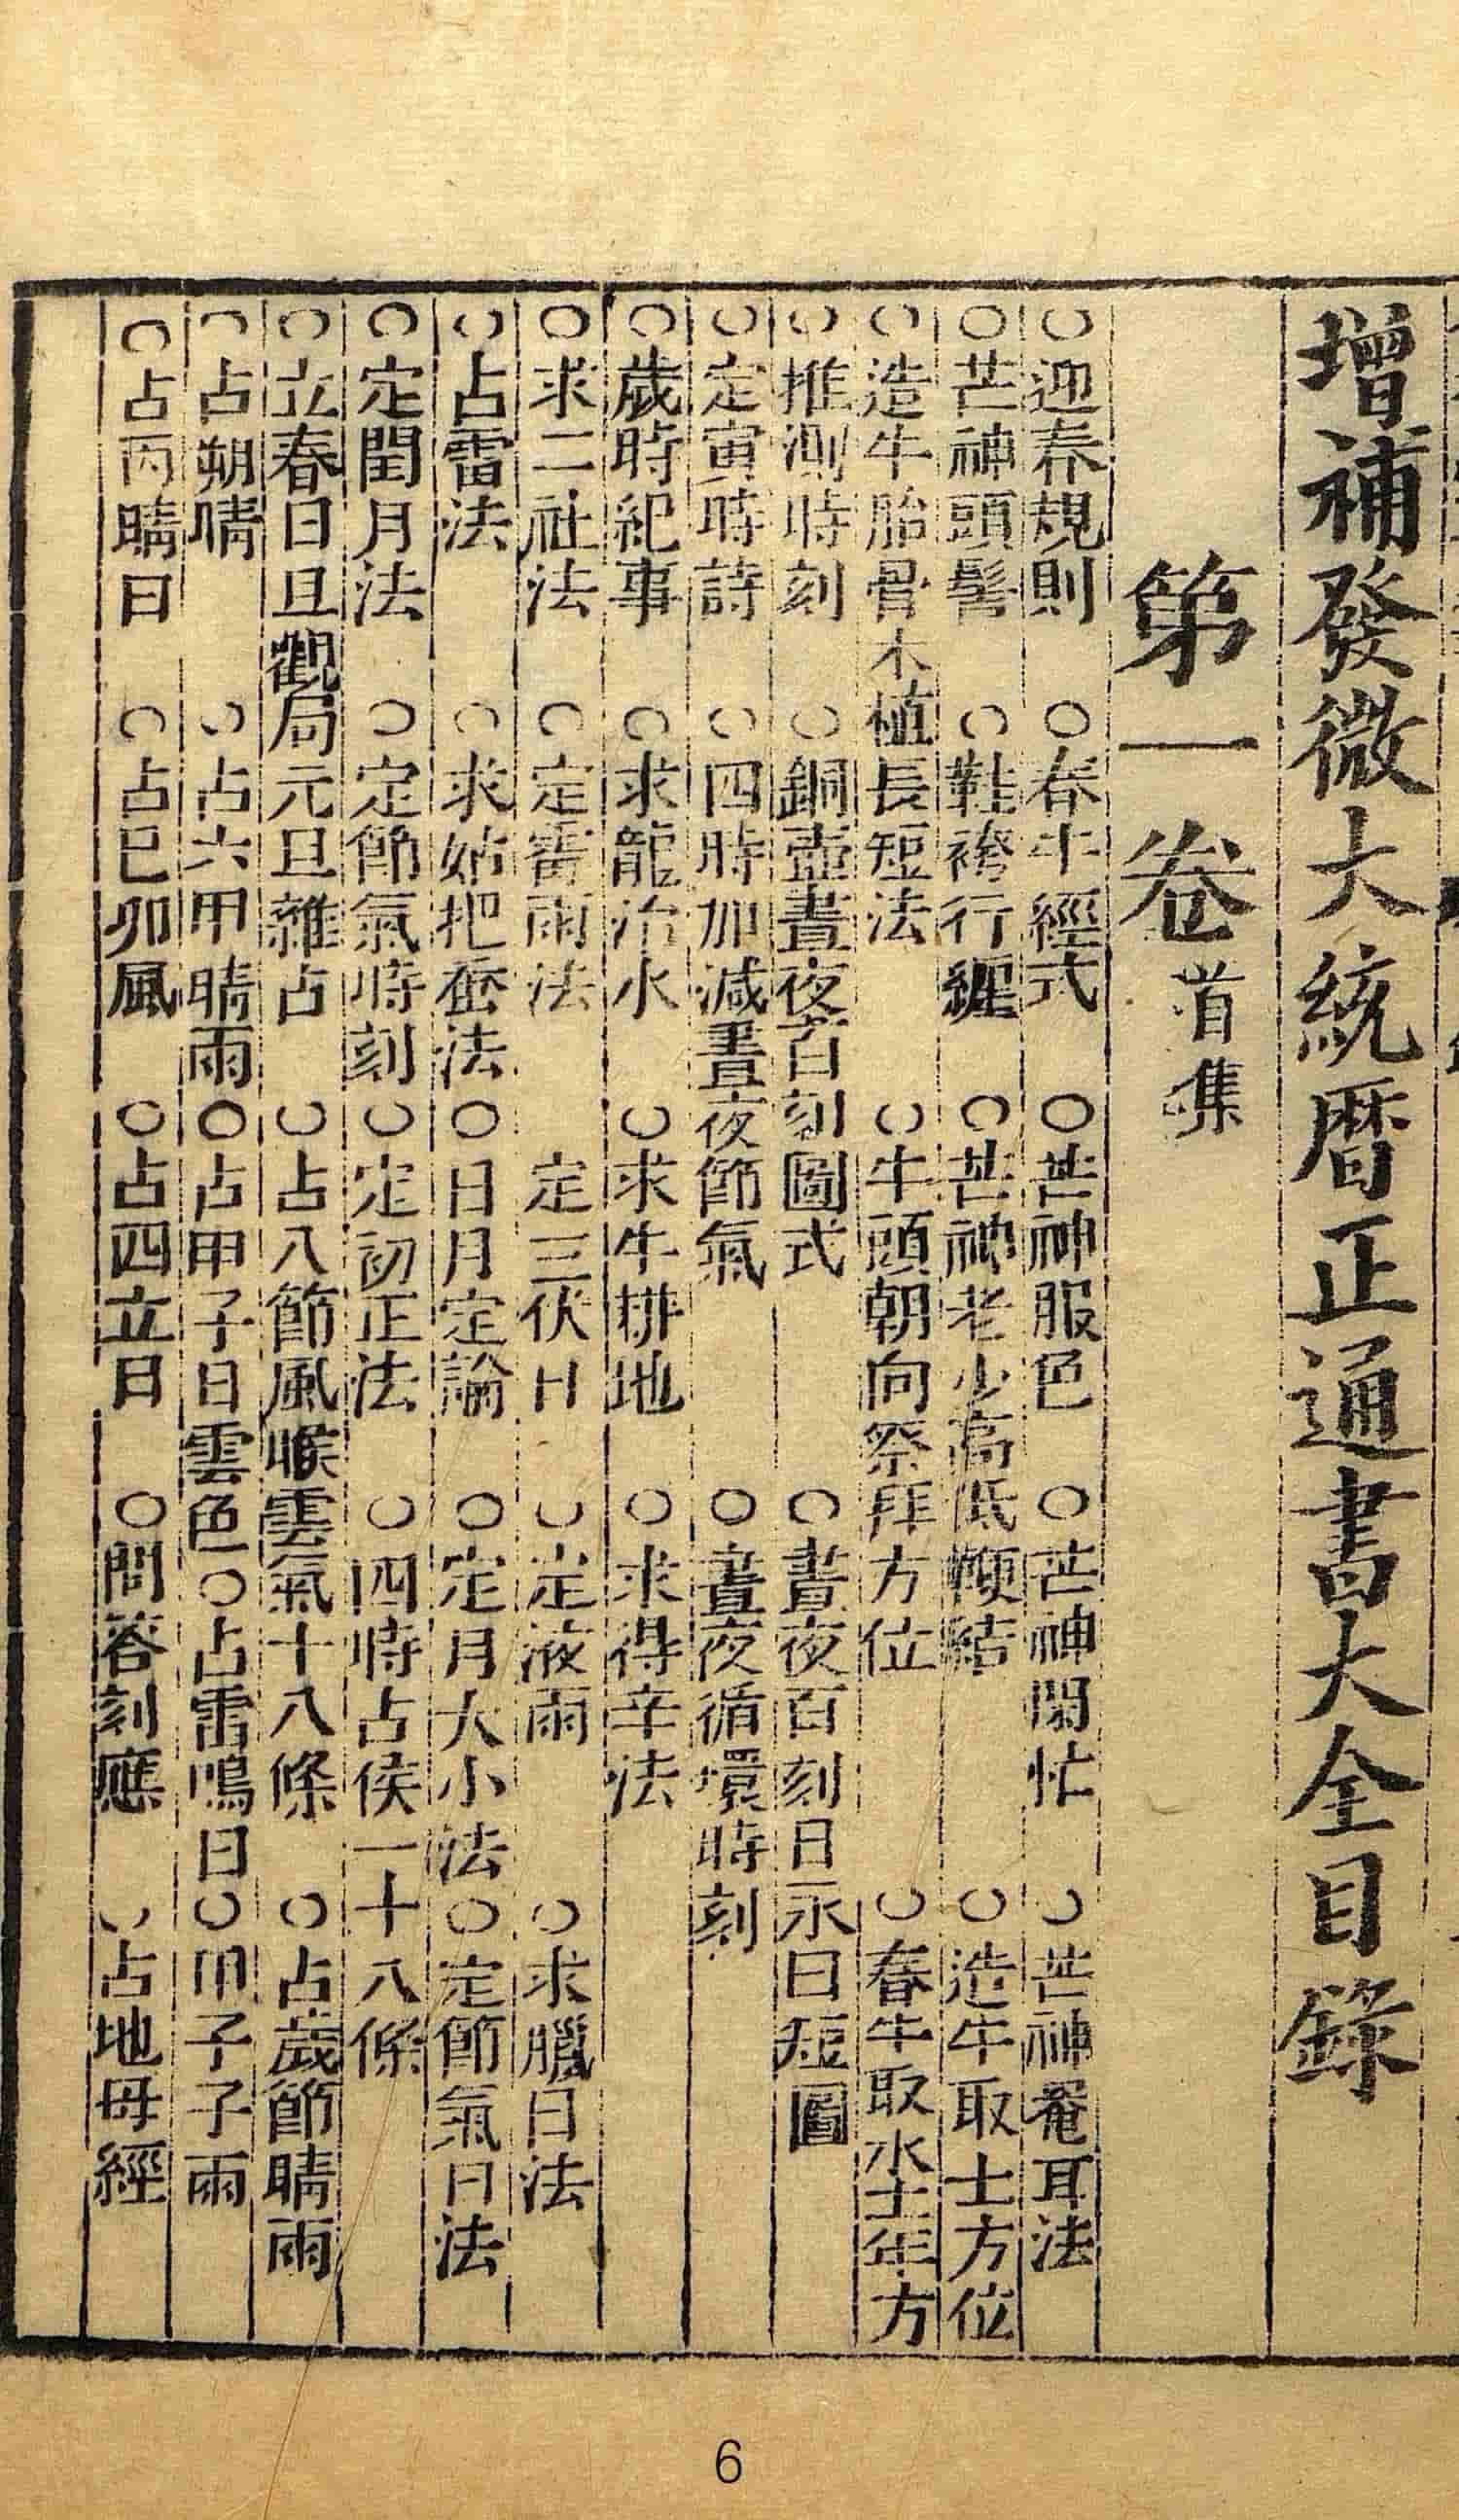 增補發微大統曆正通書大全目錄
第一卷首集
○迎春規則○春牛經式○芒神服色○芒神閑忙○芒神罨耳法
○芒神頭髻○鞋袴行纏○芒神老少高低○造牛取土方位
○造牛胎骨木植長短法○牛頭朝向祭拜方位○春牛取水土年方
○推測時刻○銅壺晝夜百刻圖式○晝夜百刻日永日短圖
○定寅時詩○四時加減晝夜節氣○晝夜循環時刻
○歲時紀事○求龍治水○求牛耕地○求得辛法
○求二社法○定霉雨法 定三伏日○定液雨○求臘日法
○占雷法○求姑把蚕法○日月定論○定月大小法○定節氣日法
○定閏月法○定節氣時刻○定初正法○四時占侯一十八條
○立春日旦觀局元旦雜占○占八節風候雲氣十八條○占歲節晴雨
○占朔晴○占六甲晴雨○占甲子日雲色○占雷鳴日○甲子子雨
○占丙晴日○占巳卯風○占四立日○問答刻應○占地母經
6